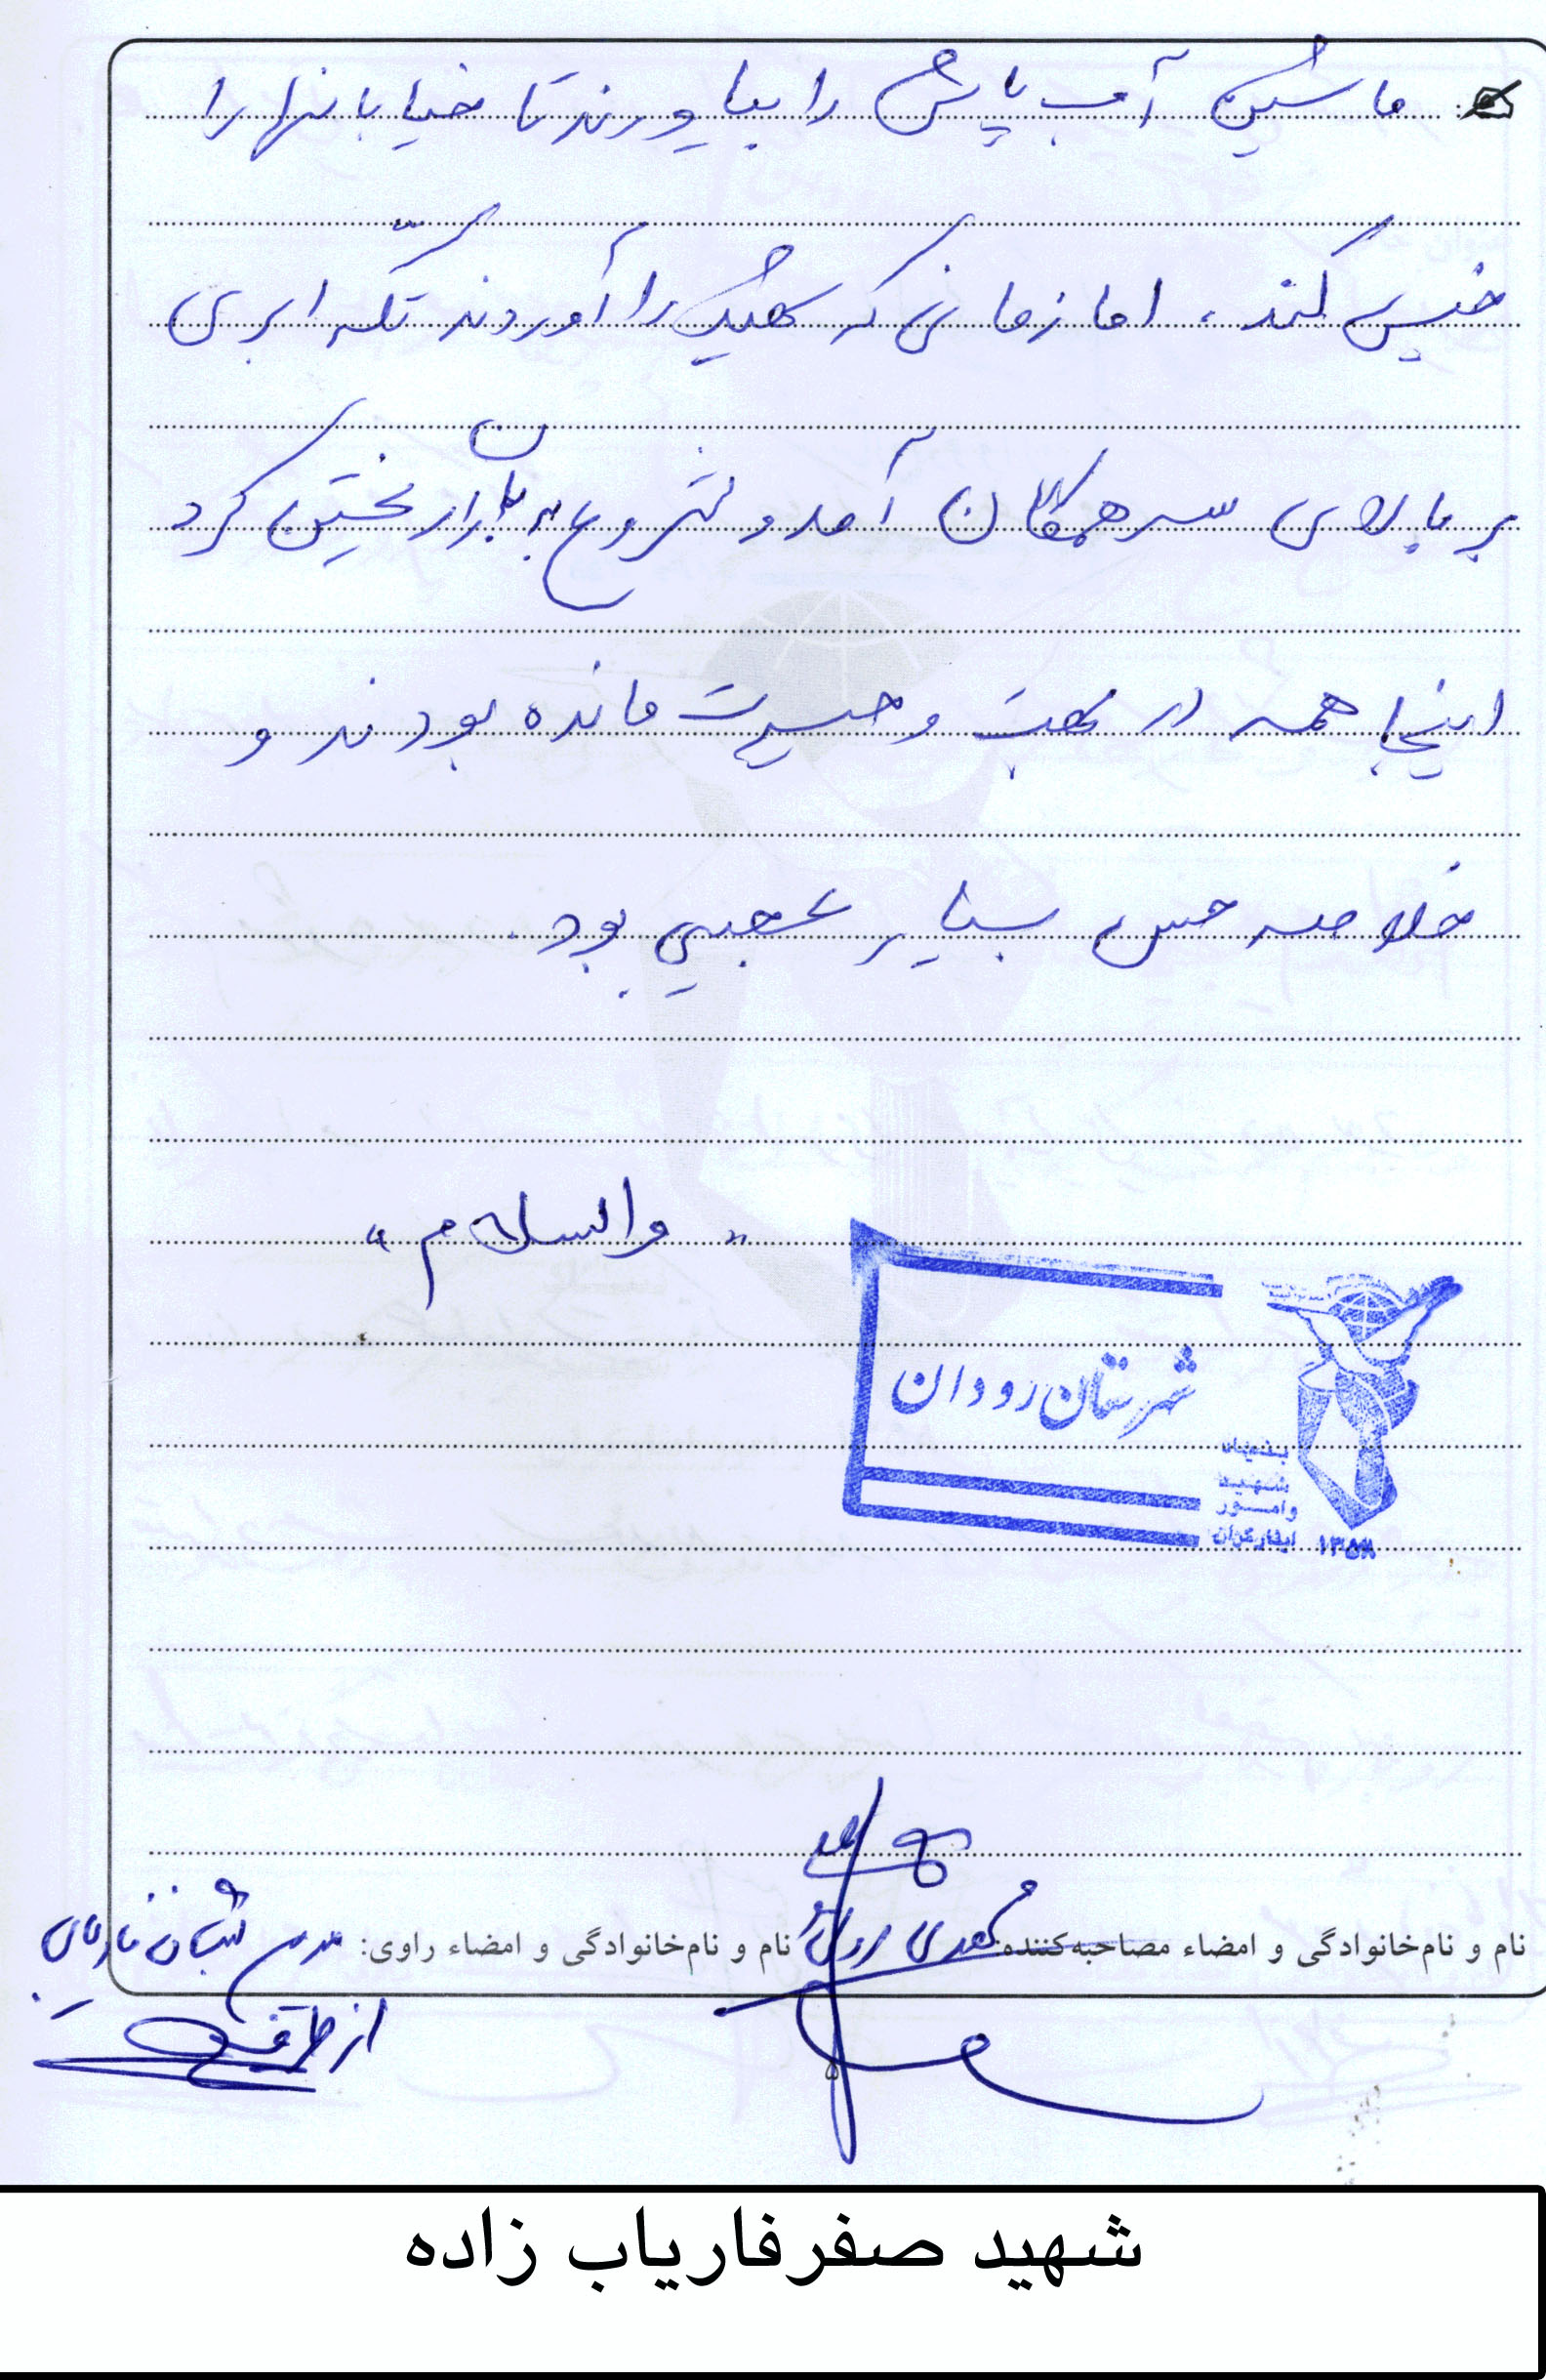 ماشین آب پاش را بیاورند تا خیابانها را
خیس کند، اما زمانی که شهید را آوردند تکه ابری
بر بالای سر همگان آمد و شروع به باران ریختن کرد
اینجا همه در بهت و حیرت مانده بودند و
خلاصه حس بسیار عجیبی بود.
"والسلام"
شهرستان رودان
بنیاد
شهید
وامور
ایثارگران
۱۳۵۸
نام و نام‌خانوادگی و امضاء مصاحبه‌کننده: مهدی
نام و نام‌خانوادگی و امضاء راوی: مریم
از طرف
۵
شهید صفرفاریاب زاده